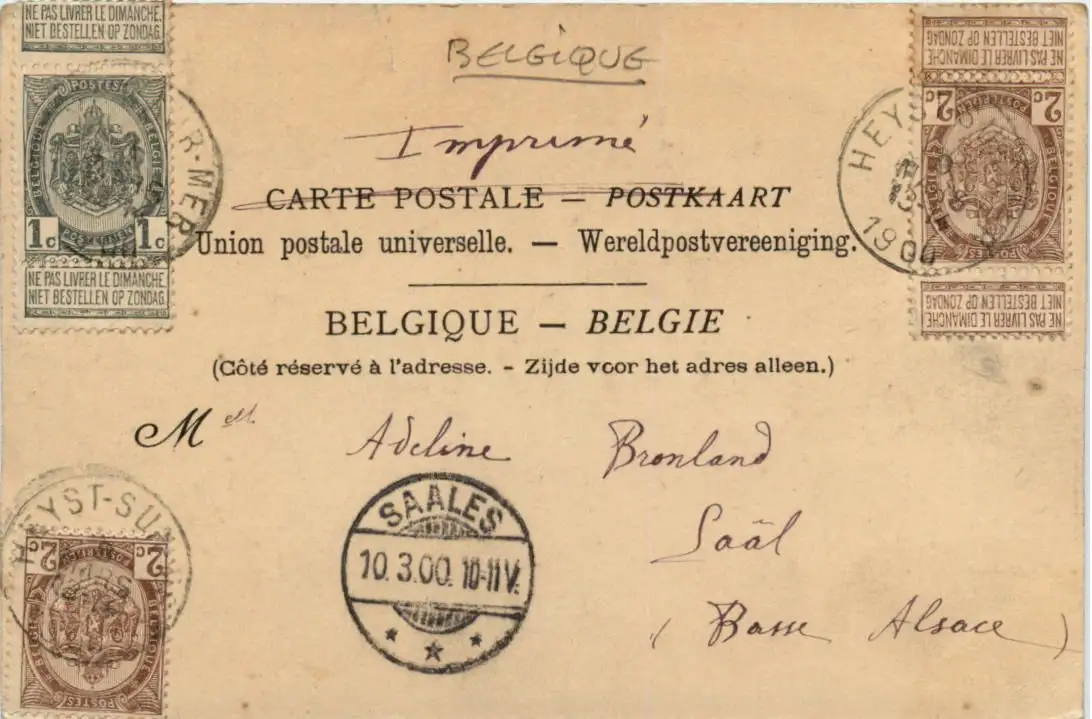 NE PAS LIVRER LE DIMANCHE
NIET BESTELLEN OP ZONDAG
POSTES
BELGIQUE
BELGIË
POSTERIJEN
1c 1c
NE PAS LIVRER LE DIMANCHE
NIET BESTELLEN OP ZONDAG
UR-MER
BELGIQUE
Imprimé
CARTE POSTALE — POSTKAART
Union postale universelle. — Wereldpostvereeniging.
BELGIQUE — BELGIE
(Côté réservé à l'adresse. - Zijde voor het adres alleen.)
NE PAS LIVRER LE DIMANCHE
NIET BESTELLEN OP ZONDAG
POSTERIJEN
2c 2c
BELGIË
BELGIQUE
POSTES
NE PAS LIVRER LE DIMANCHE
NIET BESTELLEN OP ZONDAG
HEYS
1900
Mell Adeline Bronland
Saâl
(Basse Alsace)
SAALES
10.3.00. 10-11V.
HEYST-SU
2c 2c
POSTERIJEN
BELGIË
BELGIQUE
POSTES